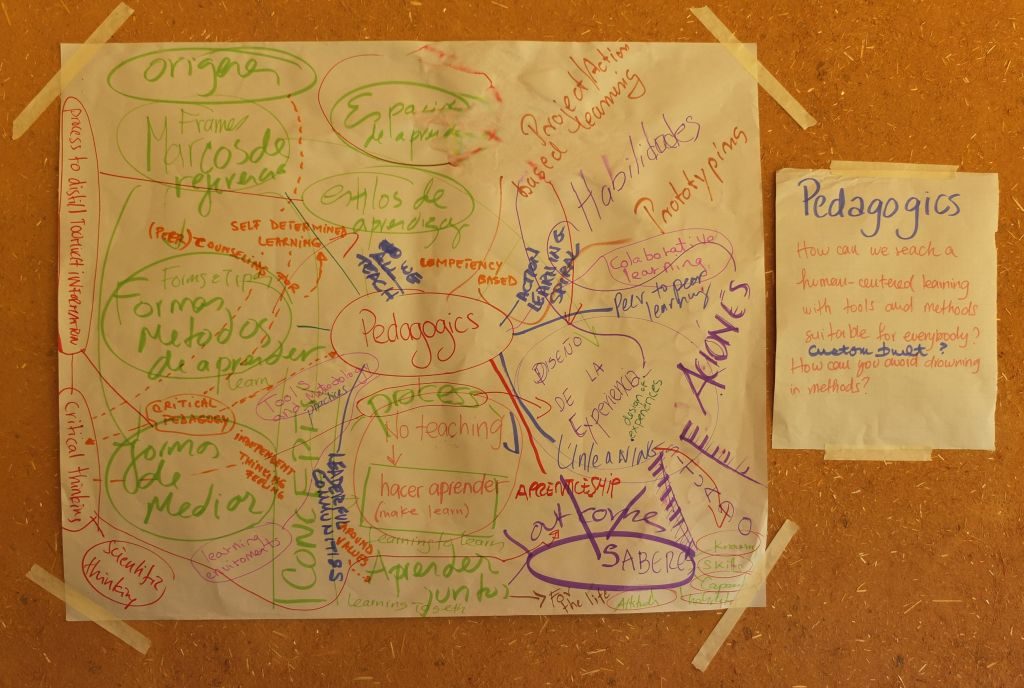 origenes
Frames
Marcos de
referencia
Espacios
de aprender
estilos de
aprendizaje
Project Action
based learning
Habilidades
Prototyping
process to distill
SELF DETERMINED
LEARNING
(PEER) COUNSELING FOR
COMPETENCY
BASED
ACTION
LEARNING
SPIRAL
Colaborative
learning
Peer to peer
learning
Formas
Metodos
de aprender
learn
Pedagogics
Tools
practices
CRITICAL
PEDAGOGY
Critical thinking
INDEPENDENT
THINKING
FEELING
Formas
de Medior
process
No teaching
hacer aprender
(make learn)
Learning to learn
Aprender
juntos
DISEÑO
DE LA
EXPERIENCIA
design of
experiences
UNLEARNING
ACIONES
APPRENTICESHIP
outcome
SABERES
FOR
The life
Attitudes
Skills
LEARNING
COMMUNITIES
AROUND
VALUES
learning
enviroments
Scientific
thinking
Pedagogics
How can we reach a
human-centered learning
with tools and methods
suitable for everybody?
custom built ?
How can you avoid drowning
in methods?